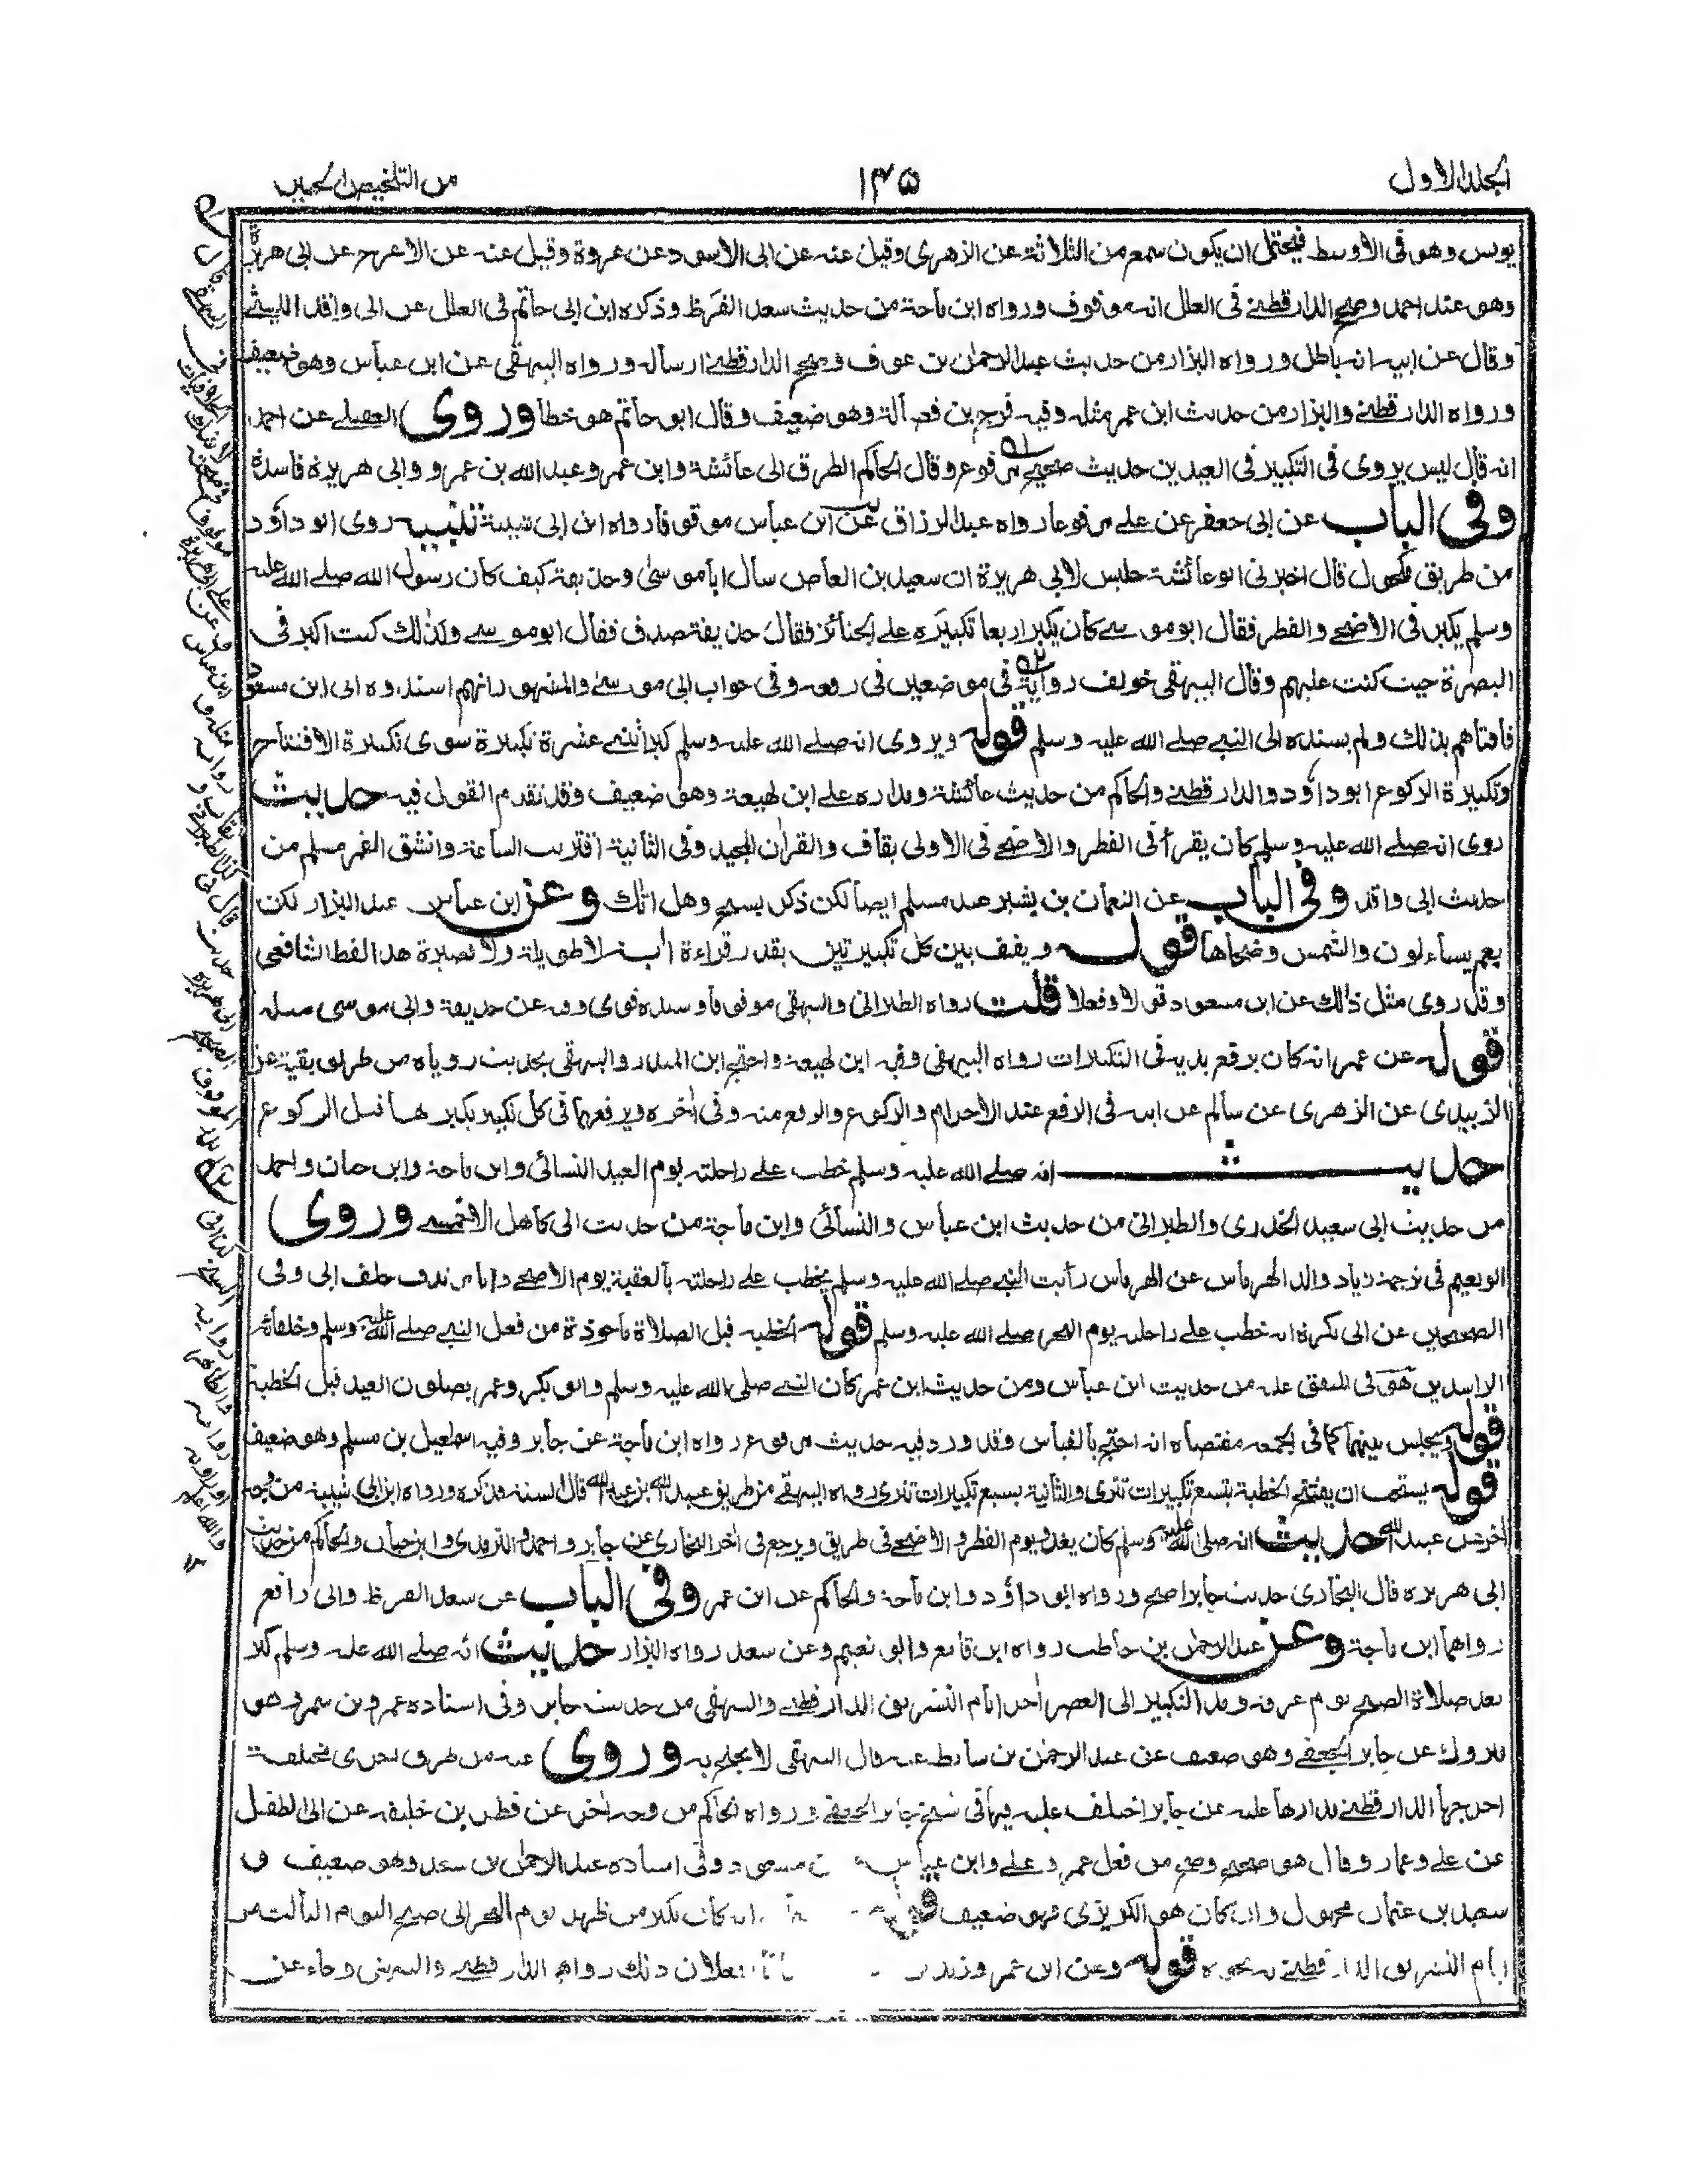 الجلد الاول
١٤٥
من التلخيص الحبير
يونس وهو فى الاوسط فيحتمل ان يكون سمع من الثلاثة عن الزهرى وقيل عنه عن ابى الاسود عن عروة وقيل عنه عن الاعرج عن ابى هريرة
وهو عند احمد وصحح الدارقطنے فى العلل انه موقوف ورواه ابن ماجة من حديث سعد القرظ وذكره ابن ابى حاتم فى العلل عن ابى واقد الليثے
وقال عن ابيه انه باطل ورواه البزار من حديث عبد الرحمٰن بن عوف وصحح الدارقطنے ارساله ورواه البيهقى عن ابن عباس وهو ضعيف
ورواه الدارقطنے والبزار من حديث ابن عمر مثله وفيه فرج بن فضالة وهو ضعيف وقال ابو حاتم هو خطأ وروى العقيلے عن احمد
انه قال ليس يروى فى التكبير فى العيدين حديث صحيح مرفوع وقال الحاكم الطرق الى عائشة وابن عمر وعبد الله بن عمرو وابى هريرة فاسدة
وفى الباب عن ابى جعفر عن علے مرفوعا رواه عبد الرزاق عن ابن عباس موقوفا رواه ابن ابى شيبة تنبيه روى ابو داؤد
من طريق مكحول قال اخبرنى ابو عائشة جليس لابى هريرة ان سعيد بن العاص سأل ابا موسىٰ وحذيفة كيف كان رسول الله صلے الله عليه
وسلم يكبر فى الاضحے والفطر فقال ابو موسے كان يكبر اربعا تكبيره علے الجنائز فقال حذيفة صدق فقال ابو موسے وكذٰلك كنت اكبر فى
البصرة حيث كنت عليهم وقال البيهقى خولف رواية فى موضعين فى رفعه وفى جواب ابى موسےٰ والمشهور انهم اسندوه الى ابن مسعود
فافتاهم بذلك ولم يسنده الى النبے صلے الله عليه وسلم قوله ويروى انه صلے الله عليه وسلم كبر اثنتے عشرة تكبيرة سوى تكبيرة الافتتاح
وتكبيرة الركوع ابو داؤد والدارقطنے والحاكم من حديث عائشة ومداره علے ابن لهيعة وهو ضعيف وقد تقدم القول فيه حديث
روى انه صلے الله عليه وسلم كان يقرأ فى الفطر والاضحے فى الاولى بقاف والقراٰن المجيد وفى الثانية اقتربت الساعة وانشق القمر مسلم من
حديث ابى واقد وفى الباب عن النعمان بن بشير عند مسلم ايضا لكن ذكر بسبح وهل اتٰك وعن ابن عباس عند البزار لكن
بعم يتساءلون والشمس وضحاها قوله ويقف بين كل تكبيرتين بقدر قراءة اٰية لا طويلة ولا قصيرة هذا لفظ الشافعى
وقد روى مثل ذٰلك عن ابن مسعود قولا وفعلا قلت رواه الطبرانى والبيهقى موقوفا وسنده قوى وفيه عن حذيفة وابى موسى مثله
قوله عن عمر انه كان يرفع يديه فى التكبيرات رواه البيهقى وفيه ابن لهيعة واحتج ابن المنذر والبيهقى بحديث روياه من طريق بقية عن
الزبيدى عن الزهرى عن سالم عن ابيه فى الرفع عند الاحرام والركوع والرفع منه وفى اٰخره ويرفعهما فى كل تكبير يكبرها قبل الركوع
حديث انه صلے الله عليه وسلم خطب علے راحلته يوم العيد النسائى وابن ماجة وابن حبان واحمد
من حديث ابى سعيد الخدرى والطبرانى من حديث ابن عباس والنسائى وابن ماجة من حديث ابى كاهل الاحمسے وروى
ابو نعيم فى ترجمة زياد والد الهرماس عن الهرماس رأيت النبے صلے الله عليه وسلم يخطب علے راحلته بالعقبة يوم الاضحے وانا مرتدف خلف ابى وفى
الصحيحين عن ابى بكرة انه خطب علے راحلته يوم النحر صلے الله عليه وسلم قوله الخطبة قبل الصلاة ماخوذة من فعل النبے صلے الله عليه وسلم وخلفائه
الراشدين هو فى المتفق عليه من حديث ابن عباس ومن حديث ابن عمر كان النبے صلى الله عليه وسلم وابو بكر وعمر يصلون العيد قبل الخطبة
قوله ويجلس بينهما كما فى الجمعة مقتضاه انه احتج بالقياس وقد ورد فيه حديث مرفوع رواه ابن ماجة عن جابر وفيه اسمعيل بن مسلم وهو ضعيف
قوله يستحب ان يفتتح الخطبة بتسع تكبيرات تترى والثانية بسبع تكبيرات تترى رواه البيهقے من طريق عبيد الله بن عبد الله قال السنة فذكره ورواه ابن ابى شيبة من وجه
اٰخر عن عبيد الله حديث انه صلى الله عليه وسلم كان يغدو يوم الفطر والاضحے فى طريق ويرجع فى اٰخر البخارى عن جابر واحمد والترمذى وابن حبان والحاكم من حديث
ابى هريرة قال البخارى حديث جابر اصح ورواه ابو داؤد وابن ماجة والحاكم عن ابن عمر وفى الباب عن سعد القرظ وابى رافع
رواهما ابن ماجة وعن عبد الرحمٰن بن حاطب رواه ابن قانع وابو نعيم وعن سعد رواه البزار حديث انه صلے الله عليه وسلم كبر
بعد صلاة الصبح يوم عرفة ومد التكبير الى العصر اٰخر ايام التشريق الدارقطنے والبيهقى من حديث جابر وفى اسناده عمرو بن شمر وهو
متروك عن جابر الجعفے وهو ضعيف عن عبد الرحمٰن بن سابط عنه قال البيهقى لا يحتج به وروى عنه من طرق اخرى مختلفة
اخرجها الدارقطنے مدارها عليه عن جابر اختلف عليه فيها فى شيخ جابر الجعفے ورواه الحاكم من وجه اٰخر عن فطر بن خليفة عن ابى الطفيل
عن علے وعمار وقال هو صحيح وصح من فعل عمر وعلے وابن عباس مسعود وفى اسناده عبد الرحمٰن بن سعد وهو ضعيف و
سعيد بن عثمان مجهول وان كان هو الكريزى فهو ضعيف انه كان يكبر من ظهر يوم النحر الى صبح اليوم الثالث من
ايام التشريق الدارقطنے به نحوه قوله وعن ابن عمر وزيد يفعلان ذلك رواهم الدارقطنے والبيهقى وجاء عن